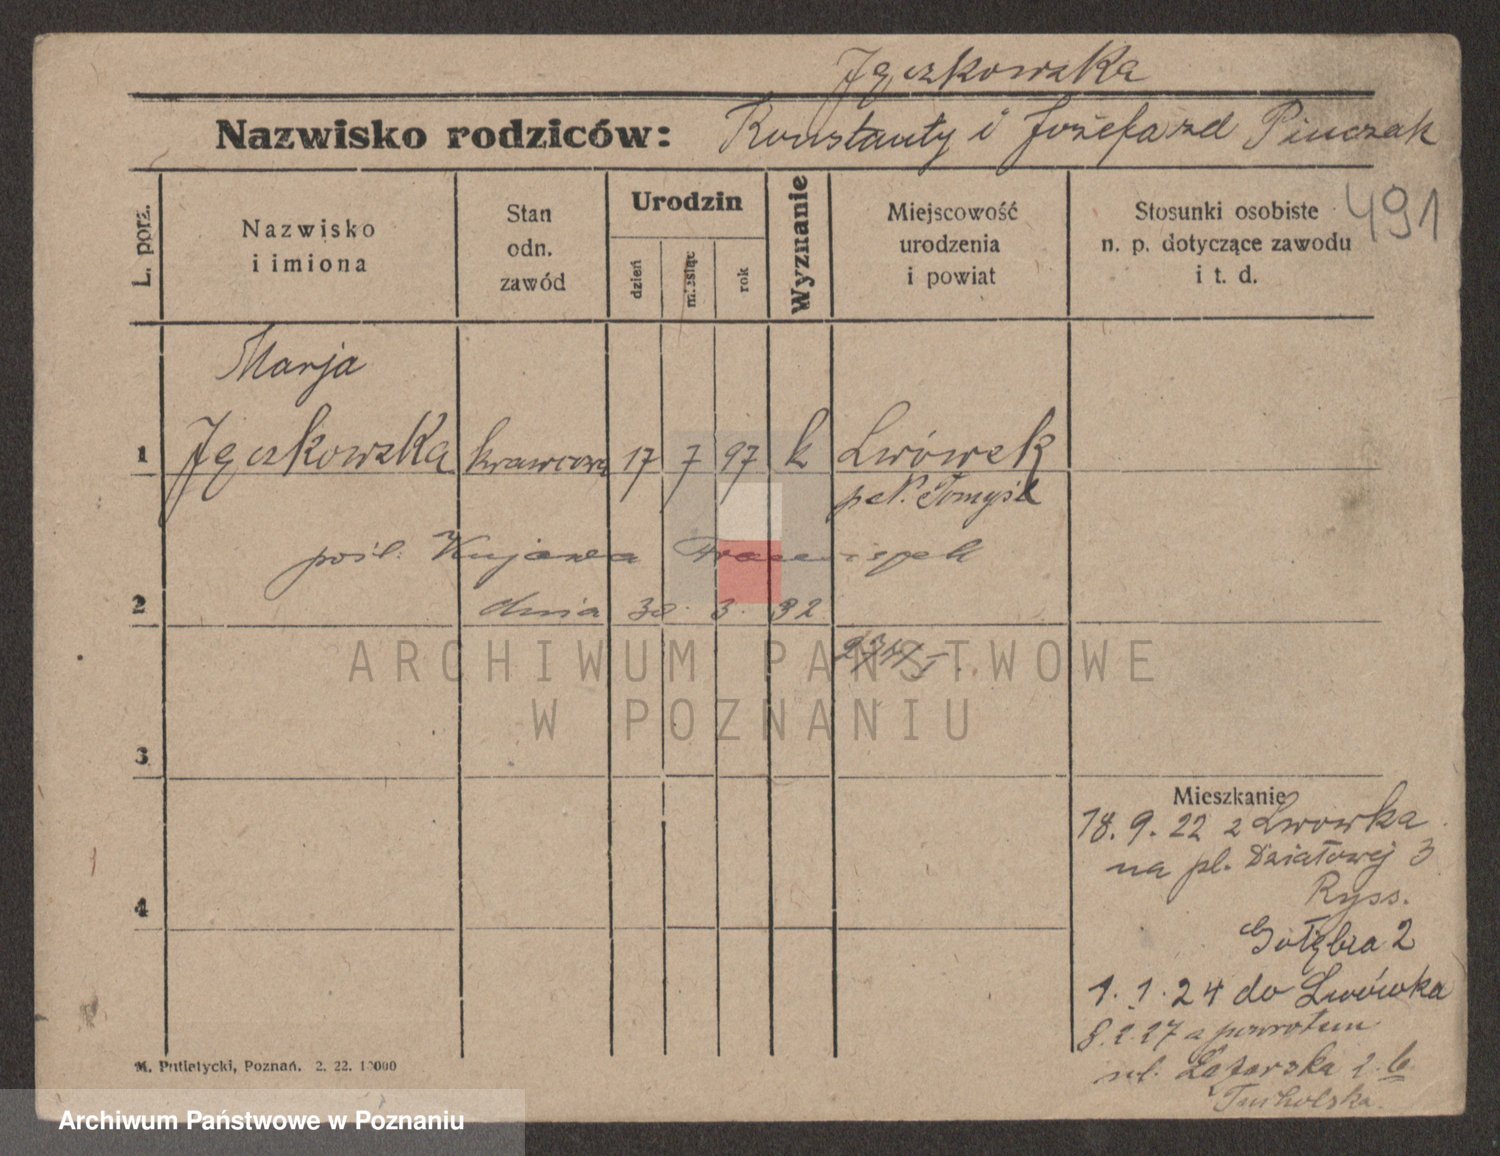 Jączkowska
Nazwisko rodziców: Konstanty i Józefa zd Pinczak
L. porz.
Nazwisko
i imiona
Stan
odn.
zawód
Urodzin
dzień
miesiąc
rok
Wyznanie
Miejscowość
urodzenia
i powiat
Stosunki osobiste
n. p. dotyczące zawodu
i t. d.
491
Marja
1 Jączkowska krawcowa 17 7 97 k Lwówek
p. N. Tomyśl
pośl. Kujawa Franciszek
2 dnia 30. 3. 32
3
4
Mieszkanie
18. 9. 22 z Lwówka
na pl. Działowej 3
Ryss.
Gołębia 2
1. 1. 24 do Lwówka
8.2.27 z powrotem
ul. Łazarska
Tucholska
M. Putiatycki, Poznań. 2. 22. 10000
ARCHIWUM PAŃSTWOWE
W POZNANIU
Archiwum Państwowe w Poznaniu